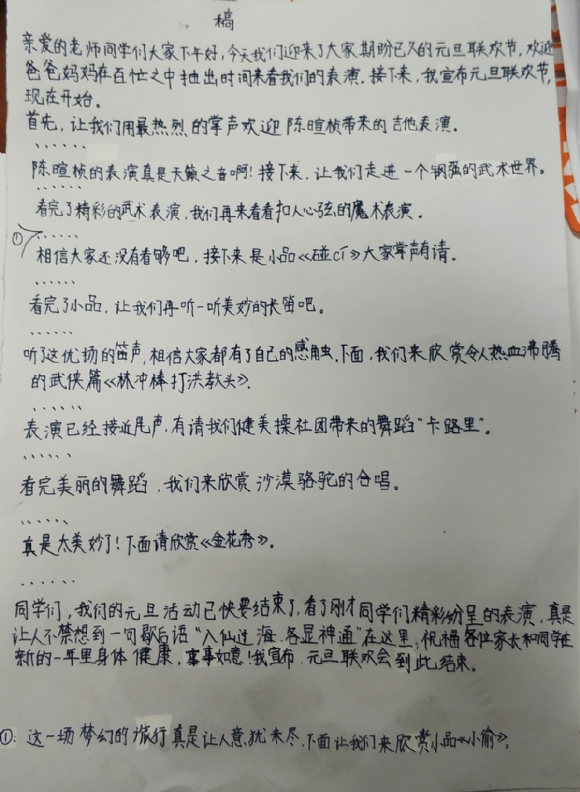 稿
亲爱的老师同学们大家下午好,今天我们迎来了大家期盼已久的元旦联欢节,欢迎
爸爸妈妈在百忙之中抽出时间来看我们的表演.接下来,我宣布元旦联欢节,
现在开始。
首先,让我们用最热烈的掌声欢迎陈暄桢带来的吉他表演。
······
陈暄桢的表演真是天籁之音啊!接下来,让我们走进一个钢强的武术世界。
······
看完了精彩的武术表演,我们再来看看扣人心弦的魔术表演。
①······
相信大家还没有看够吧,接下来是小品《碰cí》大家掌声有请。
······
看完了小品,让我们再听一听美妙的长笛吧。
······
听了这优扬的笛声,相信大家都有了自己的感触,下面,我们来欣赏令人热血沸腾
的武侠篇《林冲棒打洪教头》.
······
表演已经接近尾声,有请我们健美操社团带来的舞蹈"卡路里"。
······
看完美丽的舞蹈,我们来欣赏沙漠骆驼的合唱。
······
真是太美妙了!下面请欣赏《金花秀》。
······
同学们,我们的元旦活动已快要结束了,看了刚才同学们精彩纷呈的表演,真是
让人不禁想到一句歇后语"八仙过海,各显神通"在这里,祝福各位家长和同学在
新的一年里身体健康,事事如意!我宣布,元旦联欢会到此结束。
①:这一场梦幻的旅行真是让人意犹未尽,下面让我们来欣赏小品《小偷》.